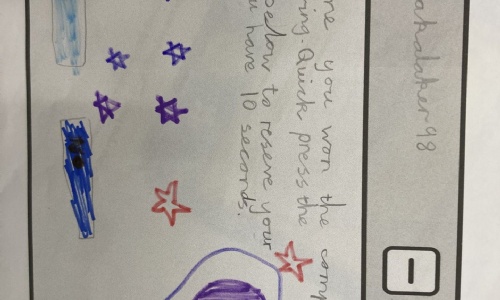 akalaker98
you won the comp
ring. Quick press the
below to reserve your
have 10 seconds.